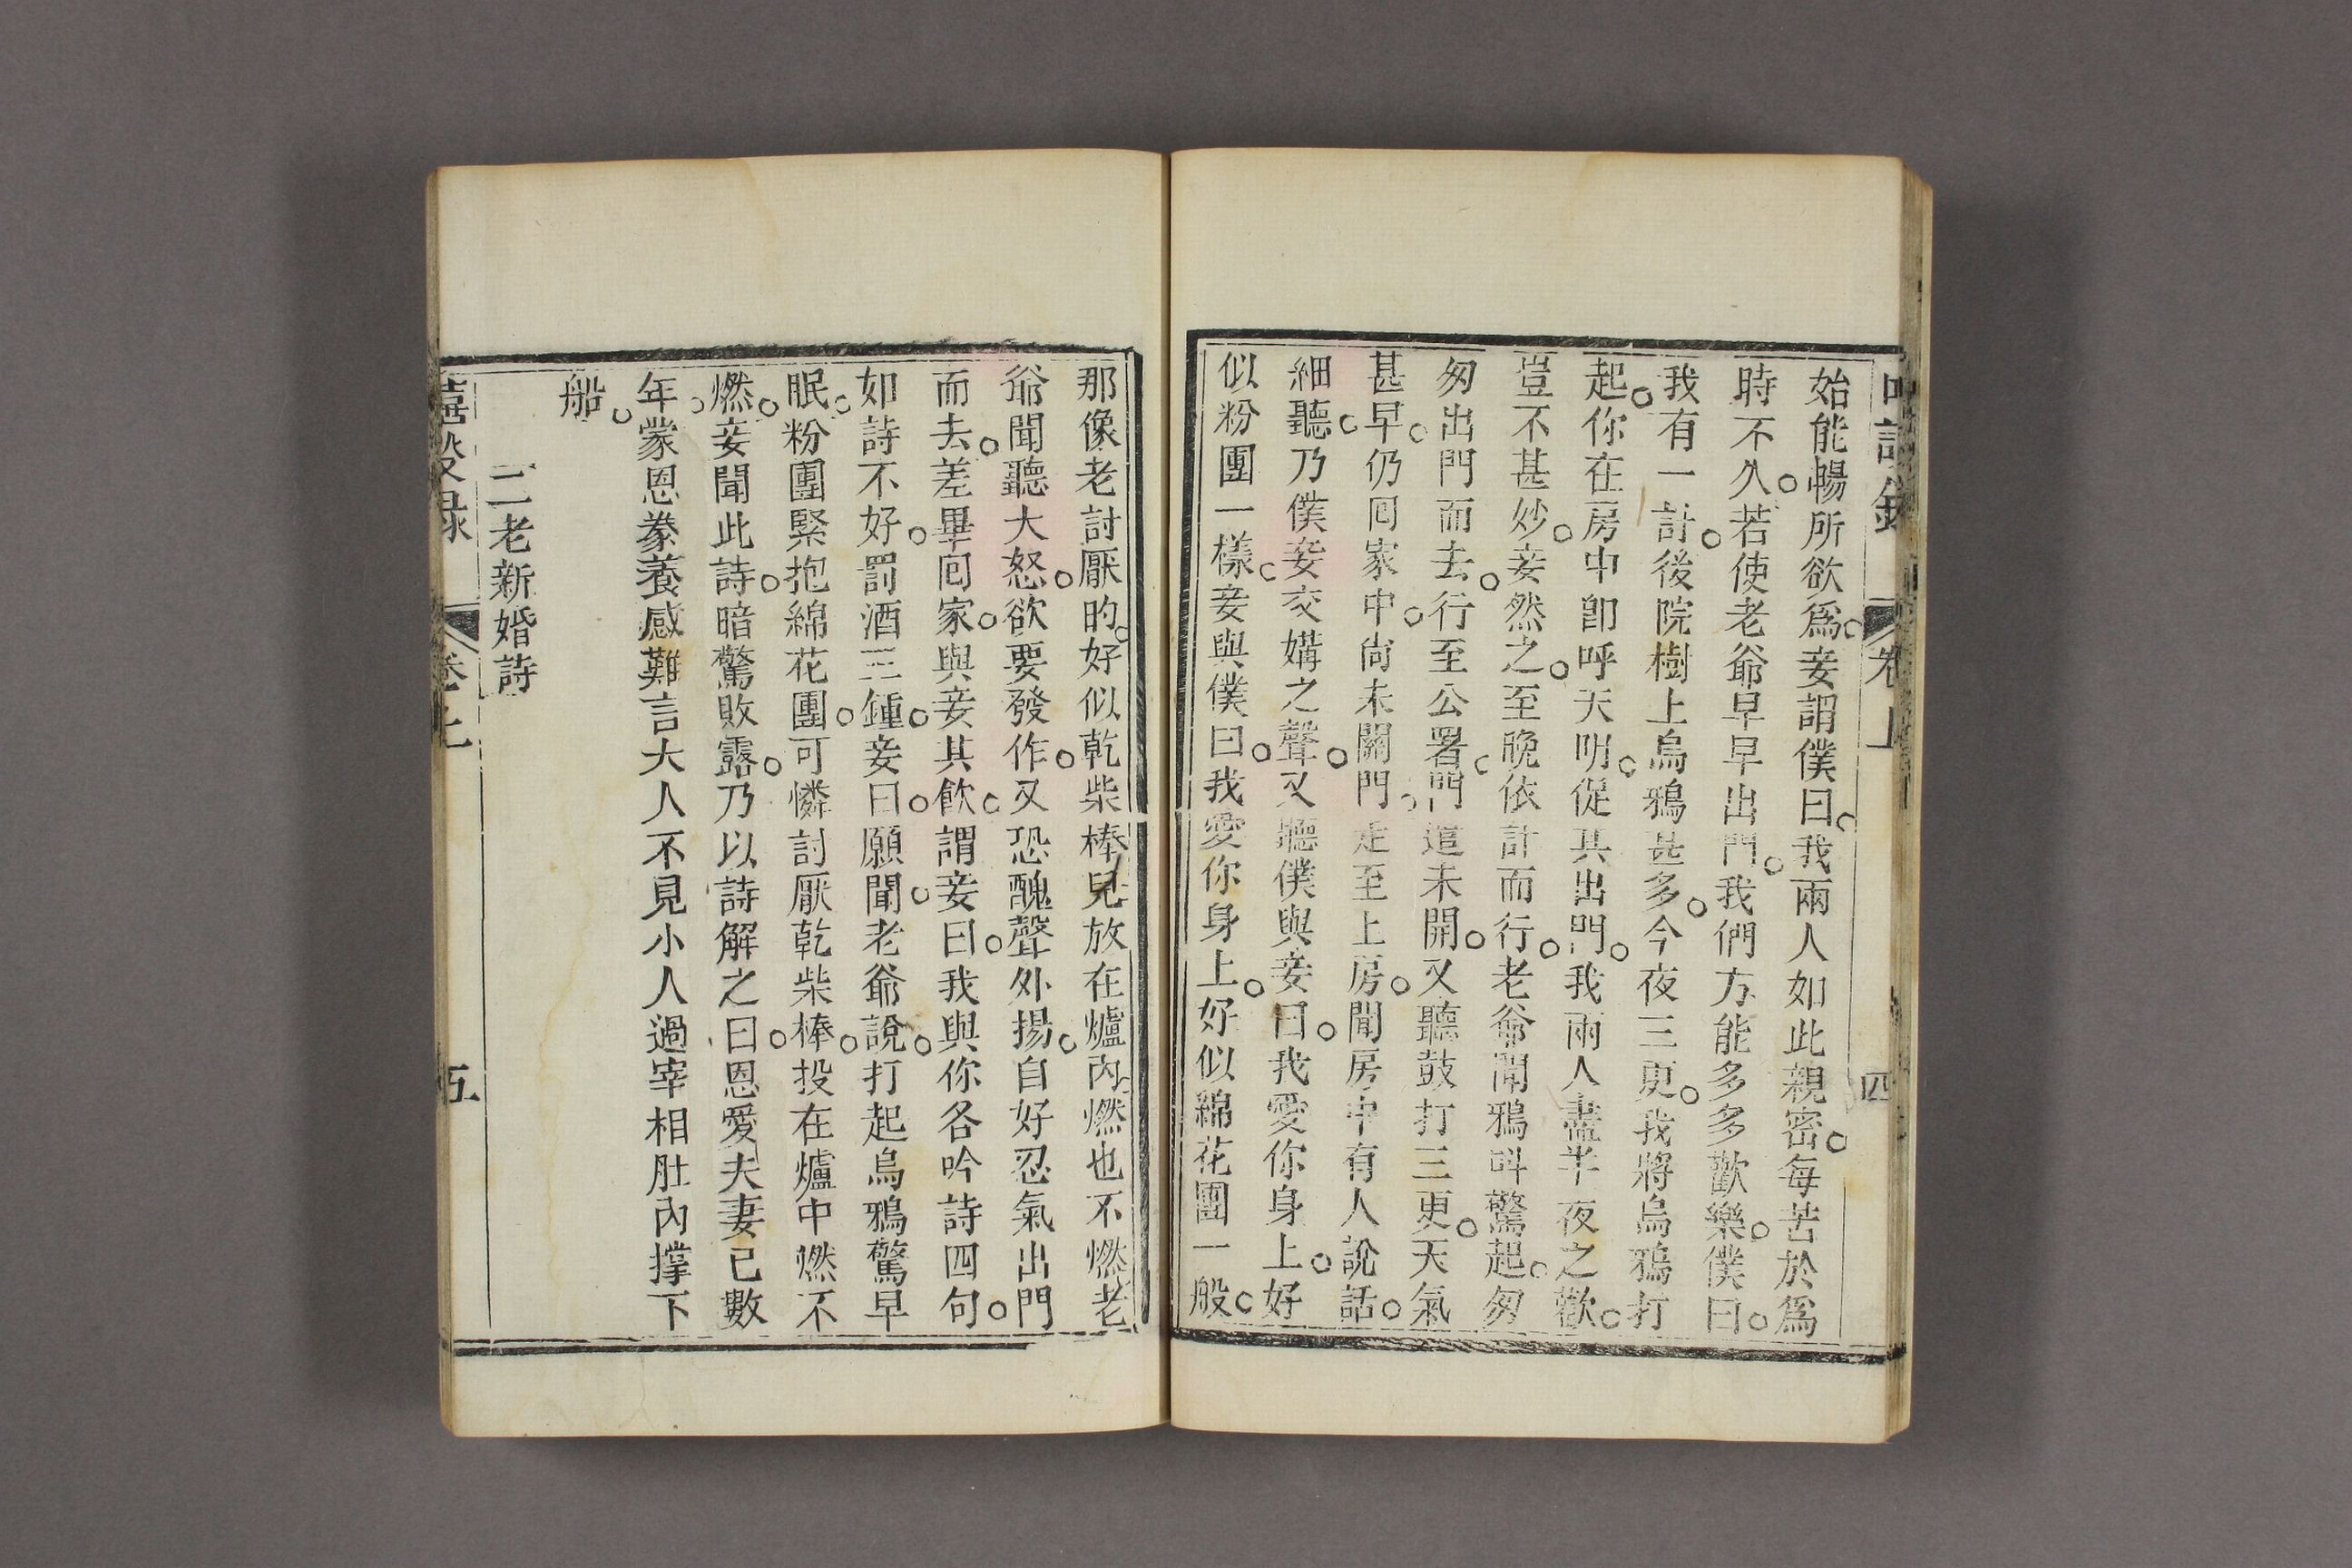 卷上
四
始能暢所欲爲○妾謂僕曰○我兩人如此親密○每苦於爲
時不久○若使老爺早早出門○我們方能多多歡樂○僕曰○
我有一計○後院樹上烏鴉甚多○今夜三更○我將烏鴉打
起○你在房中卽呼天明○促其出門○我兩人盡半夜之歡○
豈不甚妙○妾然之○至晚依計而行○老爺聞鴉叫驚起○匆
匆出門而去○行至公署○門道未開○又聽鼓打三更○天氣
甚早○仍囘家中○尙未關門○走至上房○聞房中有人說話○
細聽○乃僕妾交媾之聲○又聽僕與妾曰○我愛你身上○好
似粉團一樣○妾與僕曰○我愛你身上○好似綿花團一般○
那像老討厭的○好似乾柴棒兒放在爐內燃也不燃老
爺聞聽大怒○欲要發作○又恐醜聲外揚○自好忍氣出門
而去○差畢囘家○與妾其飮○謂妾曰○我與你各吟詩四句○
如詩不好○罰酒三鍾○妾曰○願聞○老爺說○打起烏鴉驚早
眠○粉團緊抱綿花團○可憐討厭乾柴棒○投在爐中燃不
燃○妾聞此詩○暗驚敗露○乃以詩解之曰○恩愛夫妻已數
年○蒙恩豢養感難言大人不見小人過宰相肚內撐下
船○
二老新婚詩
嘻談录
卷上
五